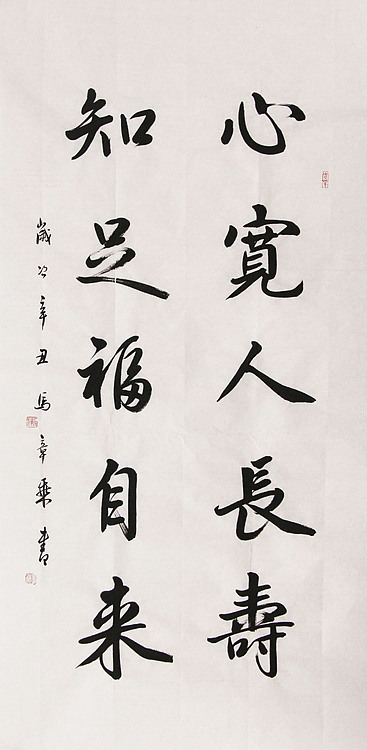 心寬人長壽
知足福自来
歲次辛丑馬章乘書